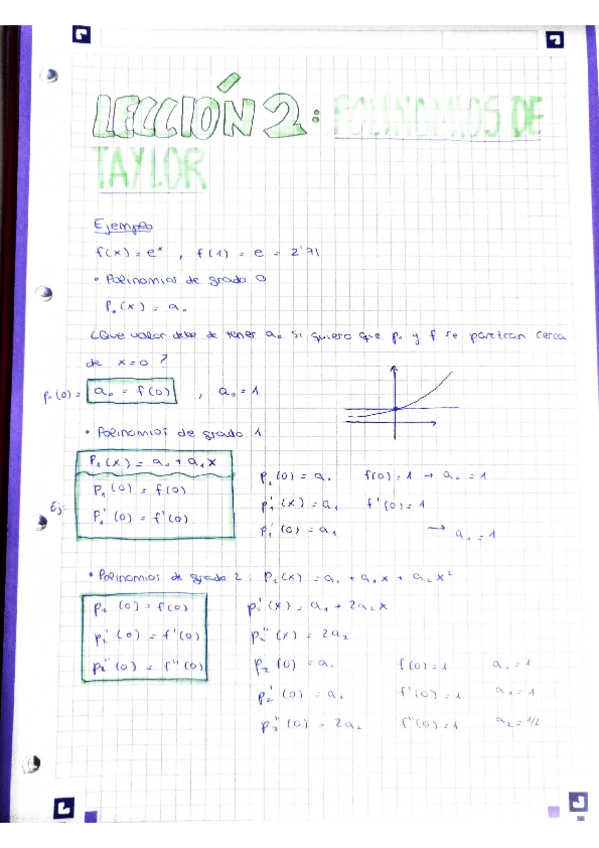 LECCIÓN 2: POLINOMIOS DE
TAYLOR
Ejemplo
f(x) = eˣ , f(1) = e = 2'71
• Polinomios de grado 0
P₀(x) = a₀
¿Que valor debe de tener a₀ si quiero que p₀ y f se parezcan cerca
de x=0 ?
p₀(0) = a₀ = f(0) , a₀ = 1
• Polinomios de grado 1
P₁(x) = a₀ + a₁x
Ej:
P₁(0) = f(0)
P₁'(0) = f'(0)
P₁(0) = a₀ f(0) = 1 → a₀ = 1
P₁'(x) = a₁ f'(0) = 1
P₁'(0) = a₁ → a₁ = 1
• Polinomios de grado 2 : P₂(x) = a₀ + a₁x + a₂x²
P₂(0) = f(0)
P₂'(0) = f'(0)
P₂''(0) = f''(0)
P₂'(x) = a₁ + 2a₂x
P₂''(x) = 2a₂
P₂(0) = a₀ f(0) = 1 a₀ = 1
P₂'(0) = a₁ f'(0) = 1 a₁ = 1
P₂''(0) = 2a₂ f''(0) = 1 a₂ = 1/2